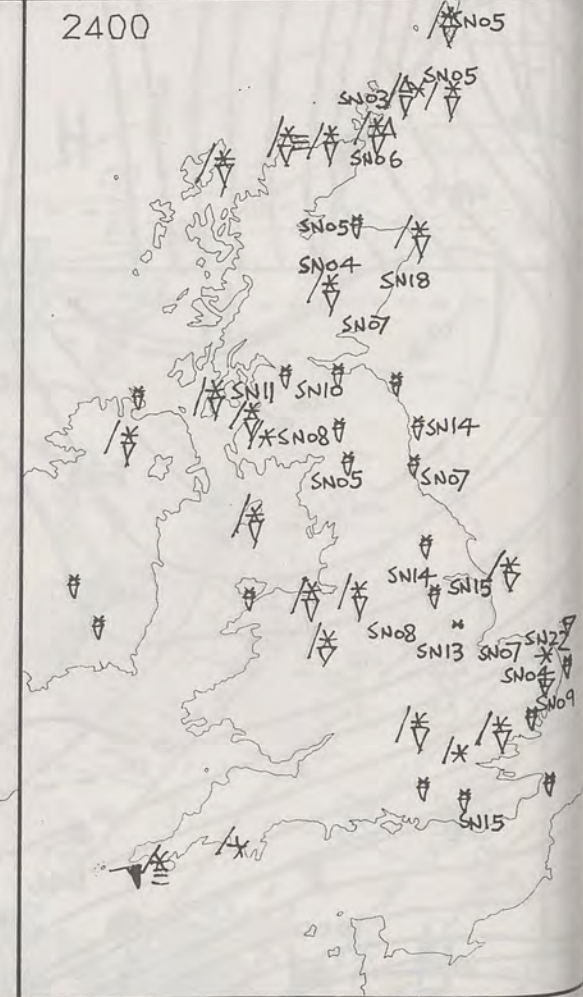 2400
SN05
SN05
SN03
SN06
SN05
SN04
SN18
SN07
SN11 SN10
SN14
SN08
SN05 SN07
SN14 SN15
SN08 SN22
SN13 SN07
SN04
SN09
SN15